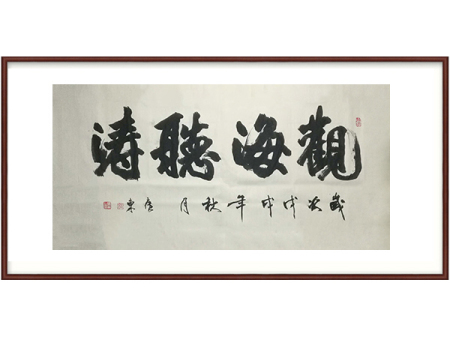 觀海聽濤
歲次戊戌年秋月